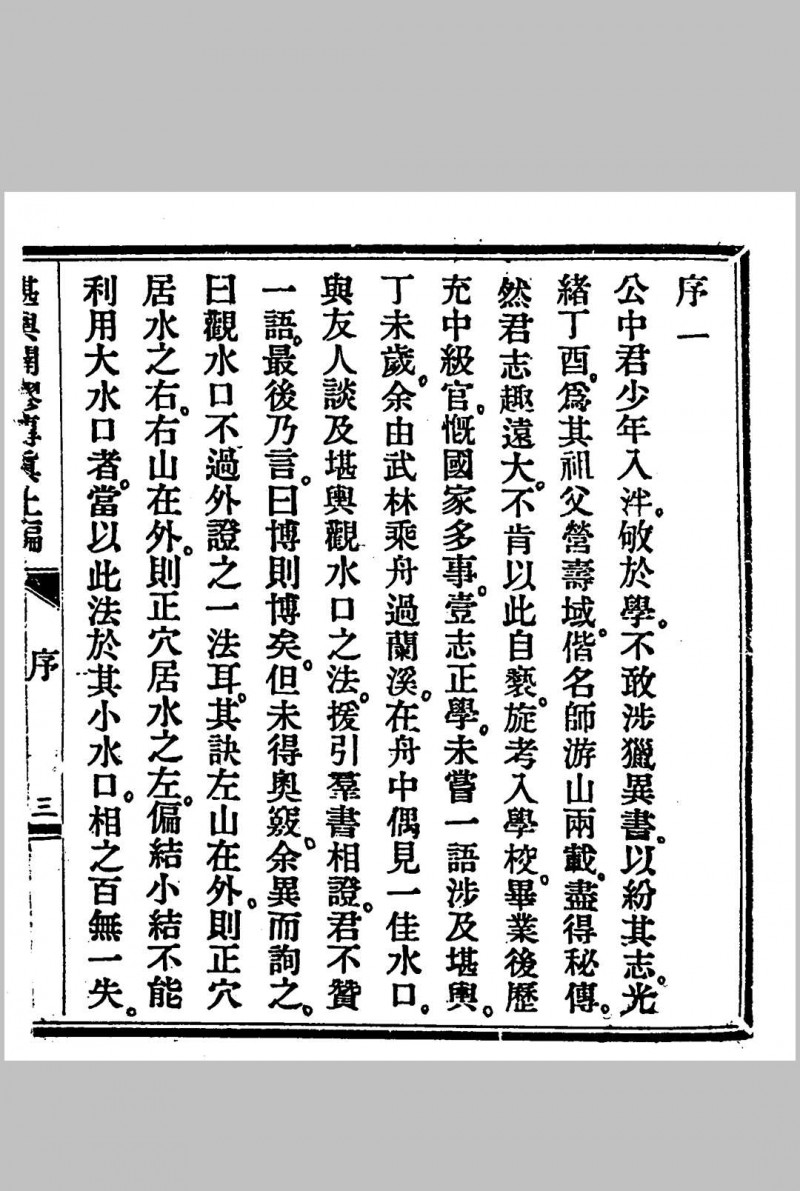 序一
公中君少年入泮。敏於學。不敢涉獵異書。以紛其志。光
緒丁酉。爲其祖父營壽域。偕名師游山兩載。盡得秘傳。
然君志趣遠大。不肯以此自褻。旋考入學校。畢業後歷
充中級官。慨國家多事。壹志正學。未嘗一語涉及堪輿。
丁未歲。余由武林乘舟過蘭溪。在舟中偶見一佳水口。
與友人談及堪輿觀水口之法。援引羣書相證。君不贊
一語。最後乃言。曰博則博矣。但未得奧竅。余異而詢之。
曰觀水口不過外證之一法耳。其訣左山在外。則正穴
居水之右。右山在外。則正穴居水之左。偏結小結不能
利用大水口者。當以此法於其小水口。相之百無一失。
堪輿開
上編
序
三